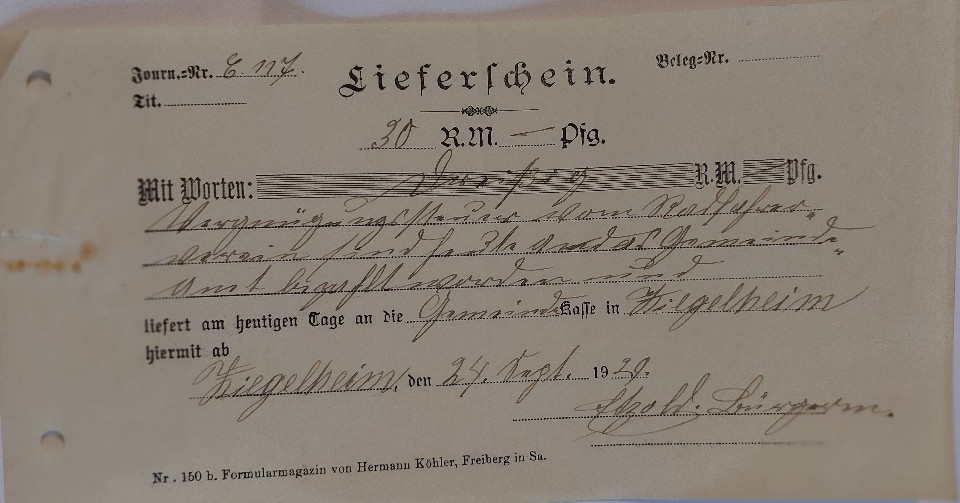 Journ.=Nr. E. 117.
Lieferschein.
Beleg=Nr.
Tit.
30 R.M. — Pfg.
Mit Worten: Dreißig R.M. — Pfg.
Vergnügungssteuer vom Radfahrer=
verein sind heute an das Gemeinde=
amt bezahlt worden und
liefert am heutigen Tage an die Gemeinde Kasse in Ziegelheim
hiermit ab
Ziegelheim, den 24. Sept. 1929.
Etzold. Bürgerm.
Nr. 150 b. Formularmagazin von Hermann Köhler, Freiberg in Sa.